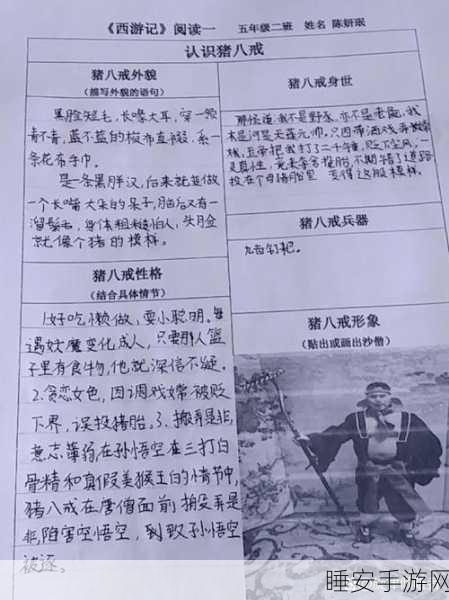 《西游记》阅读一 五年级二班 姓名 陈妍珉
认识猪八戒
猪八戒外貌
(描写外貌的语句)
黑脸短毛，长嘴大耳，穿一领
青不青，蓝不蓝的梭布直裰，系一
条花布手巾。
是一条黑胖汉，后来就变做
一个长嘴大耳的呆子，脑后又有一
溜鬃毛，身体粗糙怕人，头脸
就像个猪的模样。
猪八戒性格
(结合具体情节)
1.好吃懒做，耍小聪明。每
遇妖魔变化成人，只要那人篮
子里有食物，他就深信不疑。
2.贪恋女色，因调戏嫦被贬
下界，误投猪胎。3、搬弄是非，
意志薄弱，在孙悟空在三打白
骨精和真假美猴王的情节中，
猪八戒在唐僧面前 弄是
非，陷害空悟空，到致孙悟空
被逐。
猪八戒身世
我不是野豕，亦不是老彘，我
本是河是天蓬元帅，只因带酒戏弄
娥，玉帝把我打了二千锤，贬下
真性，竟来夺舍投胎，不期错了道路，
投在个母猪胎里 变得这般模样。
猪八戒兵器
九齿钉耙。
猪八戒形象
(贴出或画出沙僧)
睡安手游网